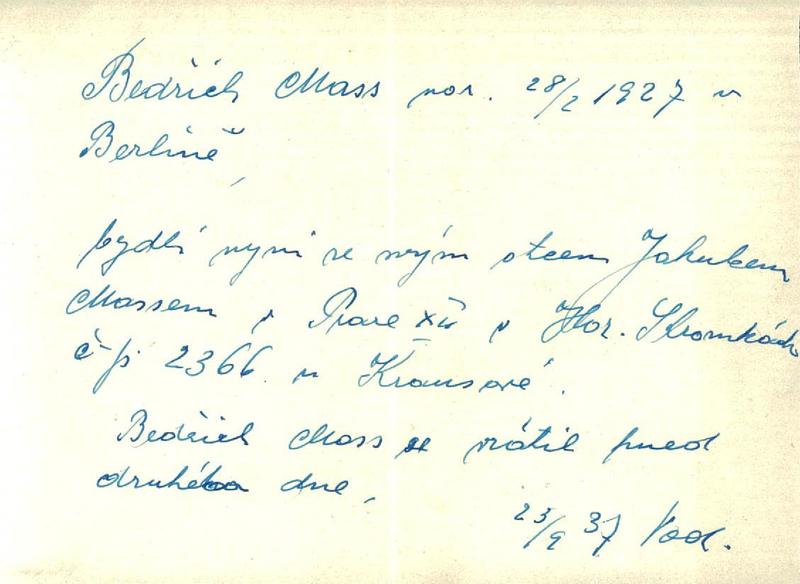 Bedřich Mass nar. 28/2 1927 v
Berlíně,
bydlí nyní se svým otcem Jakubem
Massem v Praze XII v Hor. Stromkách
č.p. 2366 u Krausové.
Bedřich Mass se vrátil hned
druhého dne,
23/9 37